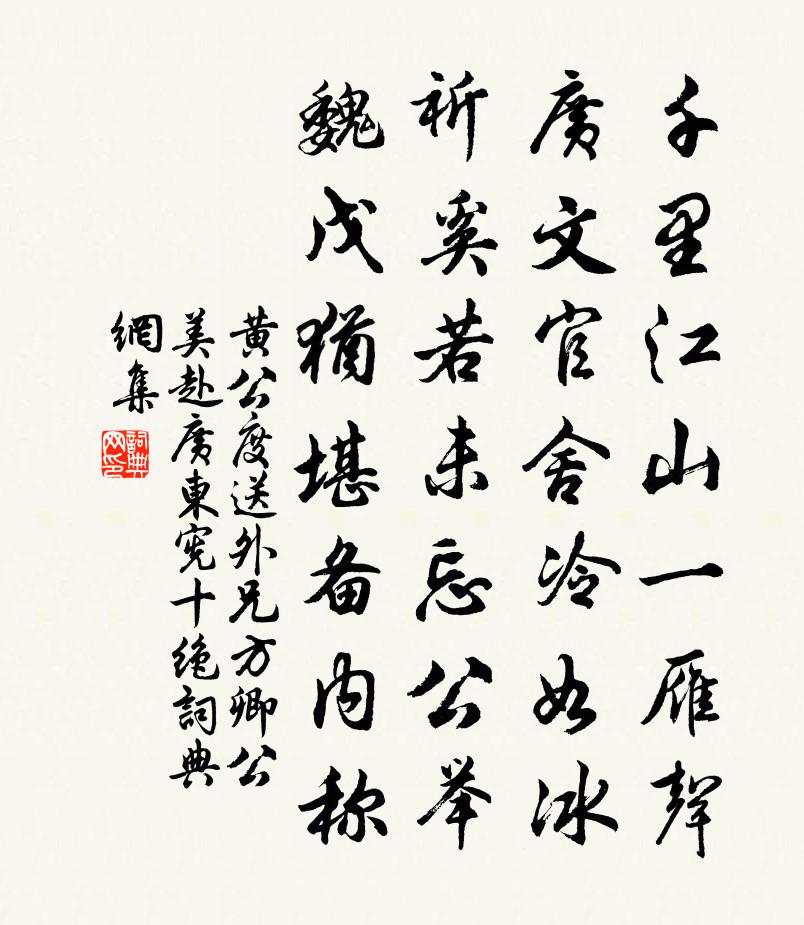 千里江山一雁聲
廣文官舍冷如冰
祈奚若未忘公举
魏戊猶堪备内称
黄公度送外兄方卿公
美赴廣東宪十絶詞典
網集
詞典
网印